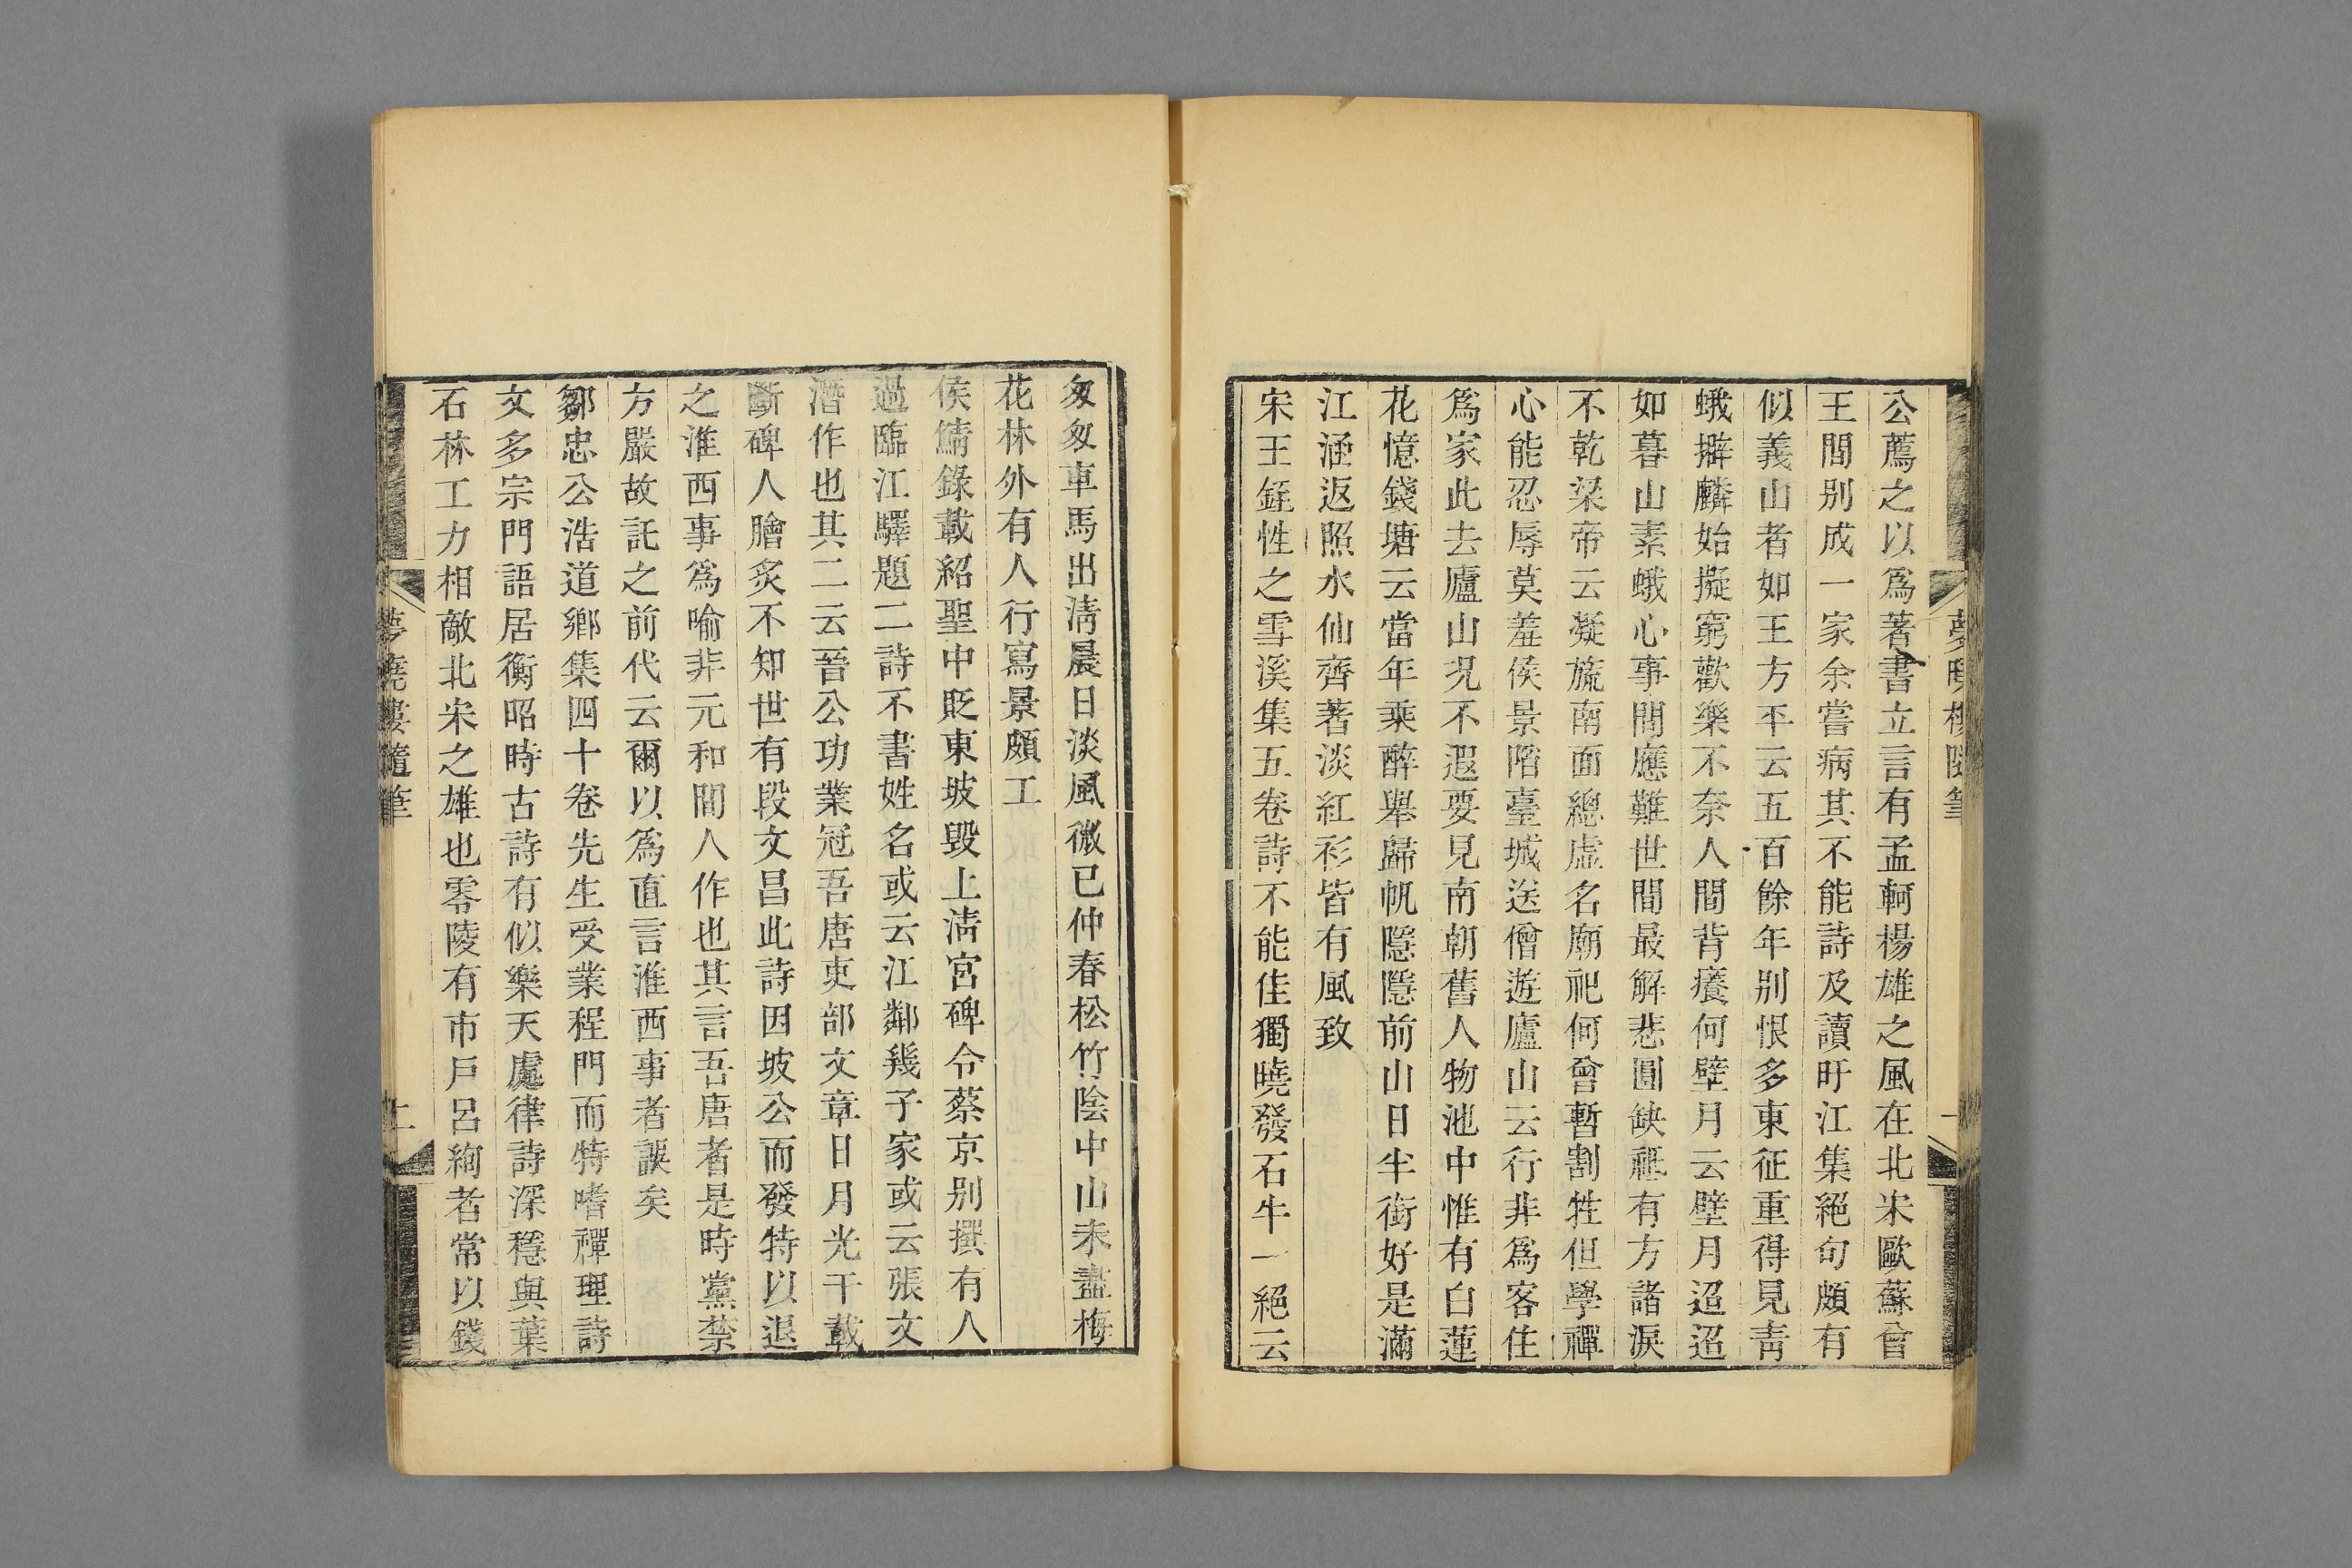 公薦之以爲著書立言有孟軻楊雄之風在北宋歐蘇曾
王間别成一家余嘗病其不能詩及讀旴江集絕句頗有
似義山者如王方平云五百餘年别恨多東征重得見靑
蛾擗麟始擬窮歡樂不奈人間背癢何壁月云璧月迢迢
如暮山素蛾心事問應難世間最解悲圓缺祗有方諸淚
不乾梁帝云凝旒南面總虛名廟祀何曾暫割牲但學禪
心能忍辱莫羞侯景陷臺城送僧遊廬山云行非爲客住
爲家此去廬山況不遐要見南朝舊人物池中惟有白蓮
花憶錢塘云當年乘醉舉歸帆隱隱前山日半銜好是滿
江涵返照水仙齊著淡紅衫皆有風致
宋王銍性之雪溪集五卷詩不能佳獨曉發石牛一絕云
匆匆車馬出淸晨日淡風微已仲春松竹陰中山未盡梅
花林外有人行寫景頗工
侯鯖錄載紹聖中貶東坡毀上淸宮碑令蔡京别撰有人
過臨江驛題二詩不書姓名或云江鄰幾子家或云張文
潛作也其二云晉公功業冠吾唐吏部文章日月光千載
斷碑人膾炙不知世有段文昌此詩因坡公而發特以退
之淮西事爲喻非元和間人作也其言吾唐者是時黨禁
方嚴故託之前代云爾以爲直言淮西事者誤矣
鄒忠公浩道鄉集四十卷先生受業程門而特嗜禪理詩
文多宗門語居衡昭時古詩有似樂天處律詩深穩與葉
石林工力相敵北宋之雄也零陵有市戶呂絢者常以錢
夢曉樓隨筆